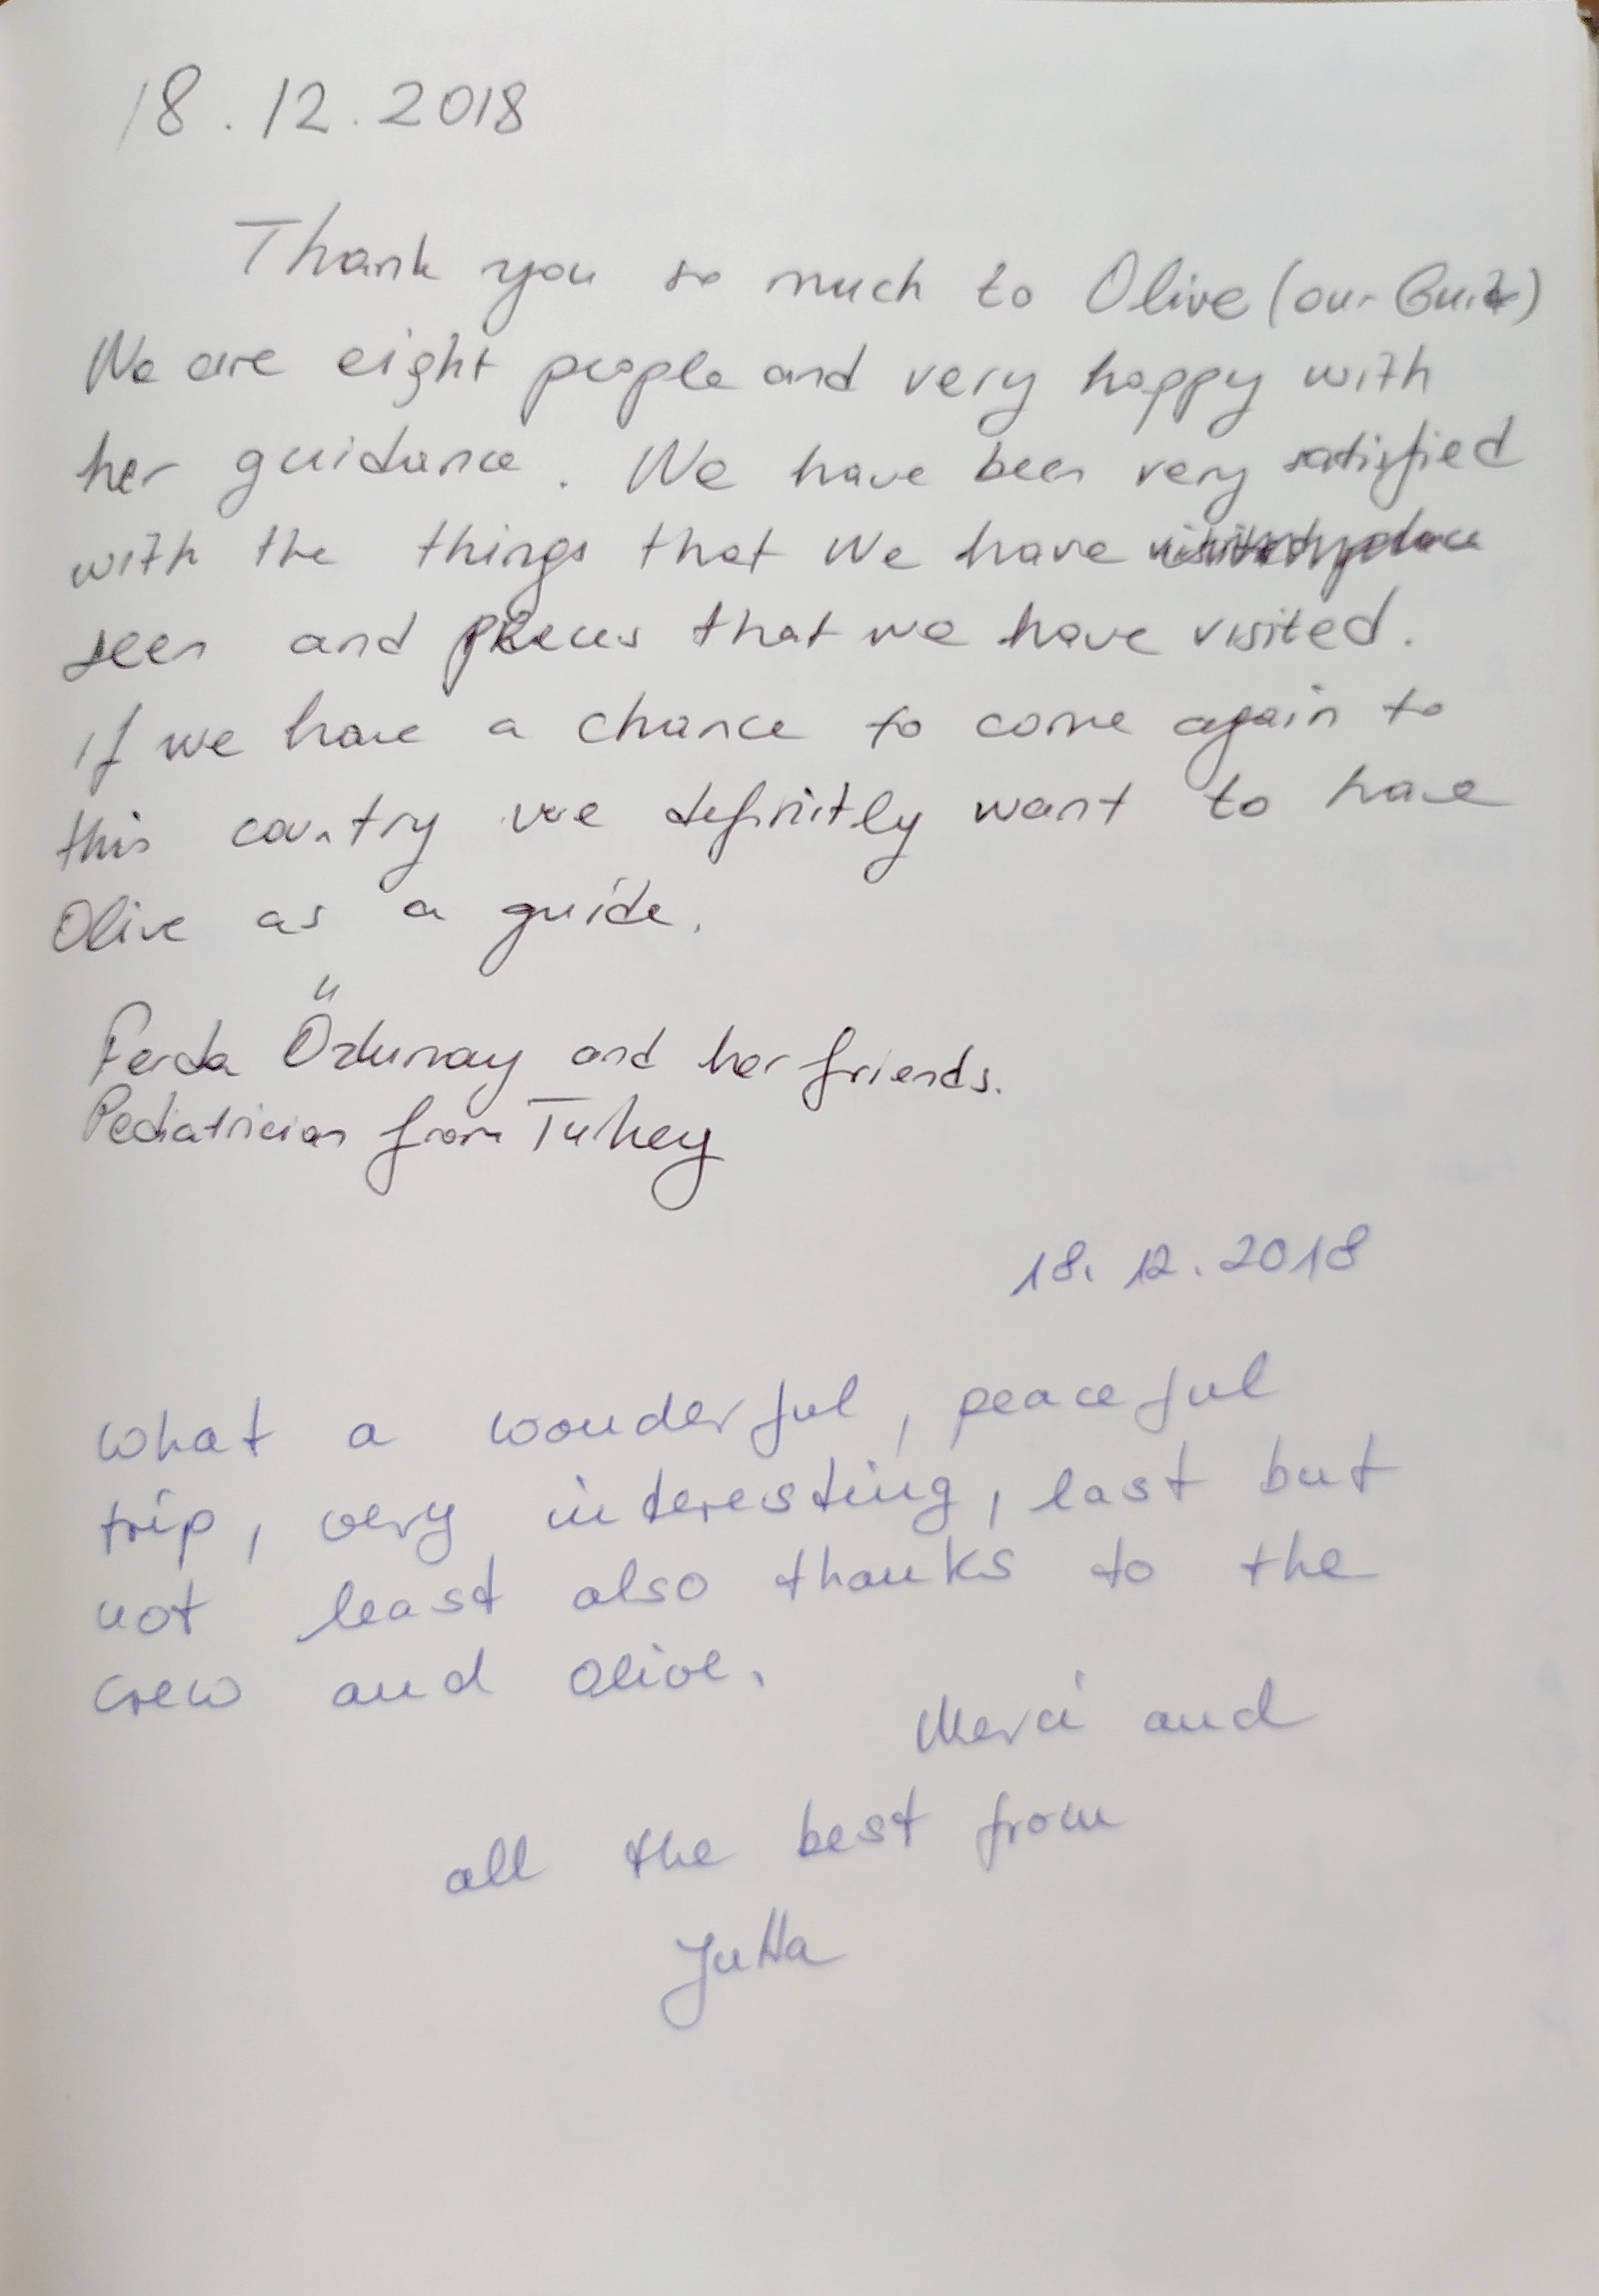 18.12.2018
Thank you so much to Olive (our Guide)
We are eight people and very happy with
her guidance. We have been very satisfied
with the things that we have
seen and places that we have visited.
if we have a chance to come again to
this country we definitly want to have
Olive as a guide.
Ferda Özdunay and her friends.
Pediatrician from Tukey
18.12.2018
what a wonderful, peaceful
trip, very interesting, last but
not least also thanks to the
crew and Olive.
Merci and
all the best from
Jutta